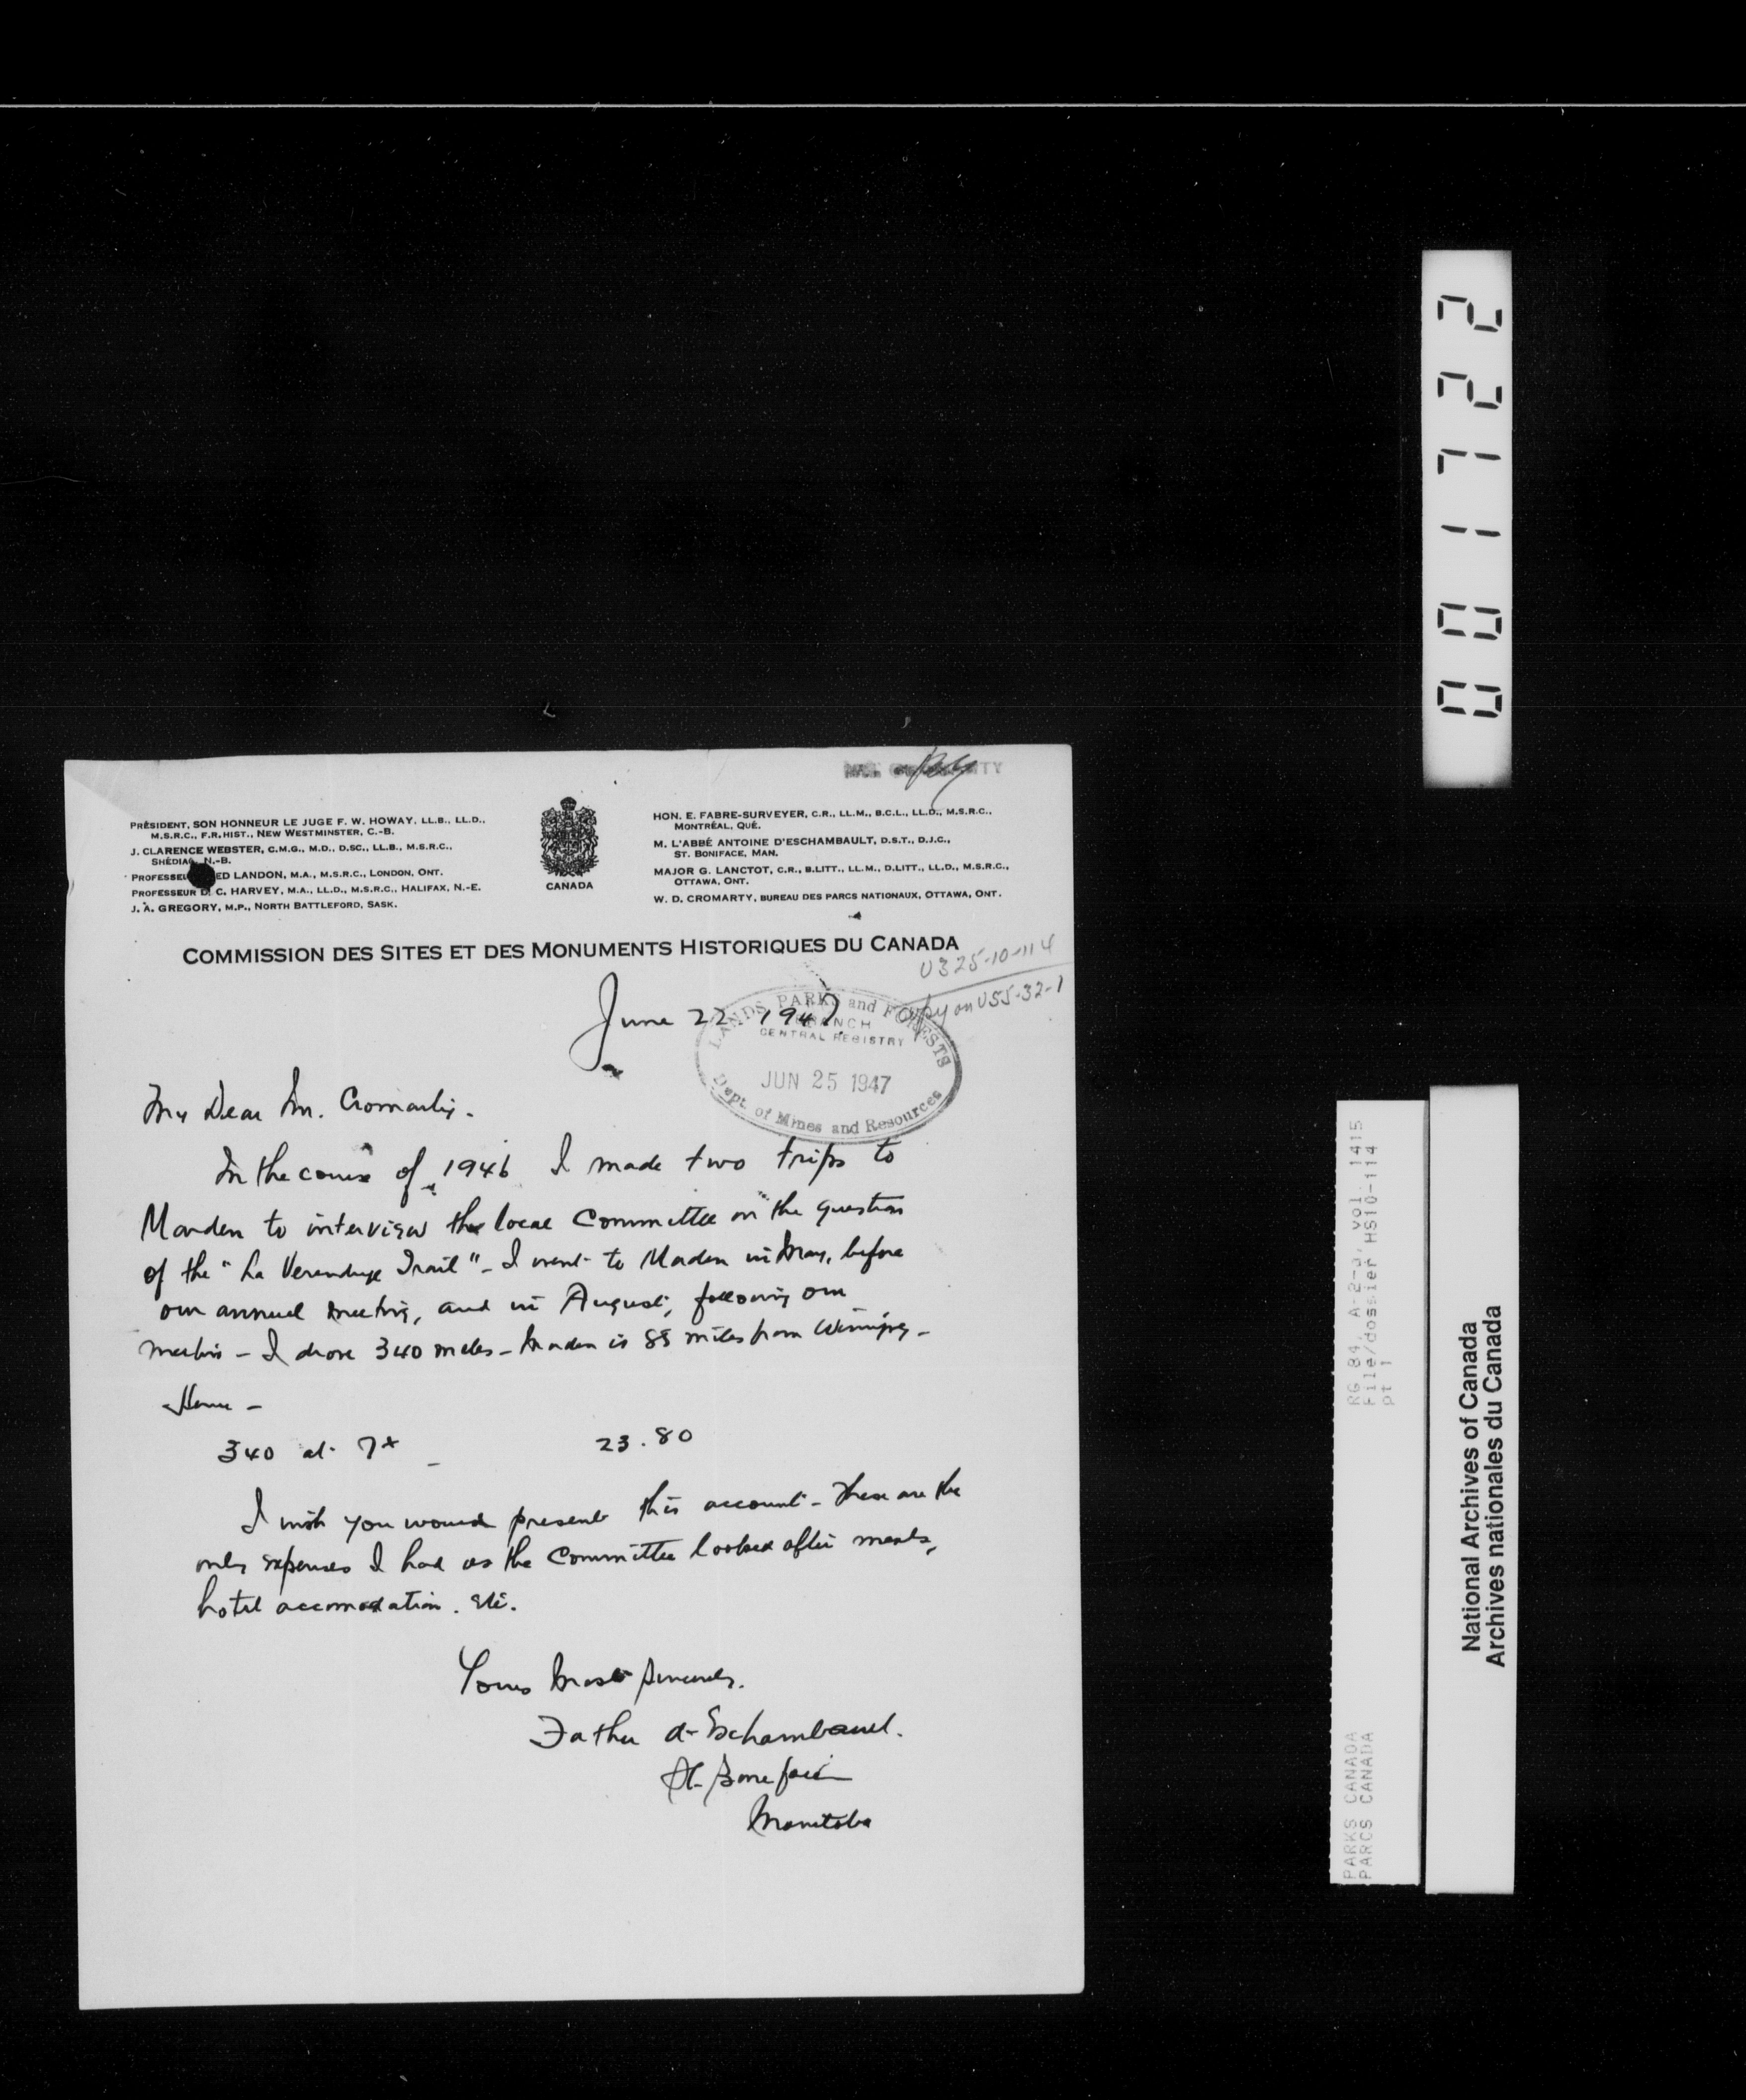 PRÉSIDENT, SON HONNEUR LE JUGE F. W. HOWAY, LL.B., LL.D.,
M.S.R.C., F.R.HIST., NEW WESTMINSTER, C.-B.
J. CLARENCE WEBSTER, C.M.G., M.D., D.SC., LL.B., M.S.R.C.,
SHÉDIAC, N.-B.
PROFESSEU ED LANDON, M.A., M.S.R.C., LONDON, ONT.
PROFESSEUR D. C. HARVEY, M.A., LL.D., M.S.R.C., HALIFAX, N.-E.
J. A. GREGORY, M.P., NORTH BATTLEFORD, SASK.
CANADA
HON. E. FABRE-SURVEYER, C.R., LL.M., B.C.L., LL.D., M.S.R.C.,
MONTRÉAL, QUÉ.
M. L'ABBÉ ANTOINE D'ESCHAMBAULT, D.S.T., D.J.C.,
ST. BONIFACE, MAN.
MAJOR G. LANCTOT, C.R., B.LITT., LL.M., D.LITT., LL.D., M.S.R.C.,
OTTAWA, ONT.
W. D. CROMARTY, BUREAU DES PARCS NATIONAUX, OTTAWA, ONT.
COMMISSION DES SITES ET DES MONUMENTS HISTORIQUES DU CANADA
U325-10-114
copy on U55-32-1
June 22 1947.
LANDS PARKS and FORESTS
BRANCH
CENTRAL REGISTRY
JUN 25 1947
Dept. of Mines and Resources
My Dear Mr. Cromarty.
In the course of 1946 I made two trips to
Morden to interview the local Committee on the question
of the "La Verendrye Trail" - I went to Morden in May, before
our annual meeting, and in August, following our
meeting - I drove 340 miles - Morden is 85 miles from Winnipeg -
Hence -
340 at 7¢ - 23.80
I wish you would present this account - These are the
only expenses I had as the Committee looked after meals,
hotel accomodation. etc.
Yours most sincerely.
Father d'Eschambault.
St. Boniface
Manitoba
001722
RG 84, A-2-a, vol. 1415
File/dossier HS10-114
pt 1
PARKS CANADA
PARCS CANADA
National Archives of Canada
Archives nationales du Canada